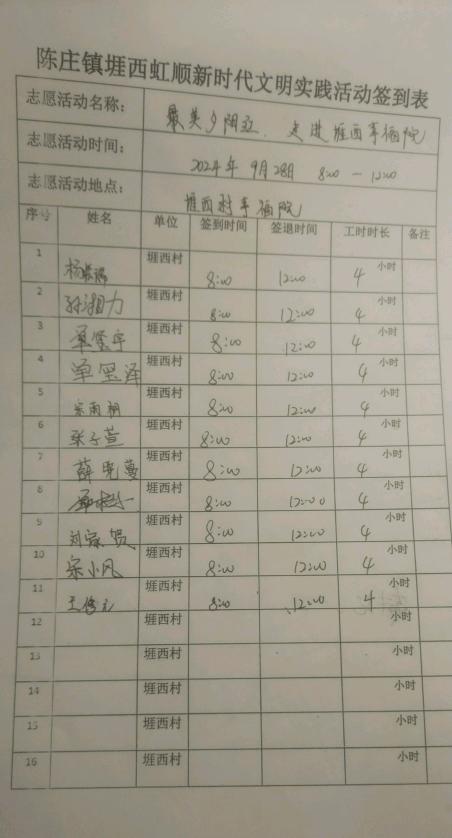 陈庄镇堐西虹顺新时代文明实践活动签到表
志愿活动名称： 最美夕阳红．走进堐西幸福院
志愿活动时间： 2024年9月28日 8:00—12:00
志愿活动地点： 堐西村幸福院
序号 姓名 单位 签到时间 签退时间 工时时长 备注
1 堐西村 8:00 12:00 4小时
2 孙湘力 堐西村 8:00 12:00 4小时
3 单玺宇 堐西村 8:00 12:00 4小时
4 单玺泽 堐西村 8:00 12:00 4小时
5 宋雨桐 堐西村 8:00 12:00 4小时
6 张子萱 堐西村 8:00 12:00 4小时
7 薛晓蔓 堐西村 8:00 12:00 4小时
8 堐西村 8:00 12:00 4小时
9 刘宗贺 堐西村 8:00 12:00 4小时
10 宋小风 堐西村 8:00 12:00 4小时
11 堐西村 8:00 12:00 4小时
12 堐西村 小时
13 堐西村 小时
14 堐西村 小时
15 堐西村 小时
16 堐西村 小时